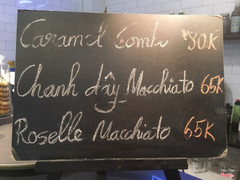 Caramel Combu 80K
Chanh dây Macchiato 65K
Roselle Macchiato 65K